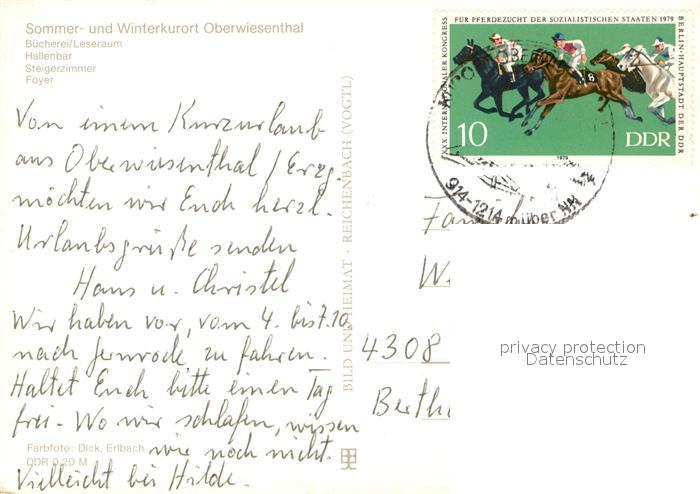 Sommer- und Winterkurort Oberwiesenthal
Bücherei/Leseraum
Hallenbar
Steigerzimmer
Foyer
Von einem Kurzurlaub
aus Oberwiesenthal / Erzg.
möchten wir Euch herzl.
Urlaubsgrüße senden
Hans u. Christel
Wir haben vor, vom 4. bis 7.10
nach Gernrode zu fahren.
Haltet Euch bitte einen Tag
frei. Wo wir schlafen, wissen
wir noch nicht.
Vielleicht bei Hilde.
Farbfoto: Dick, Erlbach
DDR 0,20 M
BILD UND HEIMAT · REICHENBACH (VOGTL)
XXX. INTERNATIONALER KONGRESS
FÜR PFERDEZUCHT DER SOZIALISTISCHEN STAATEN 1979
BERLIN-HAUPTSTADT DER DDR
8
10
DDR
1979
914-1214 m über NN
Fam
W
4308
Berth
privacy protection
Datenschutz